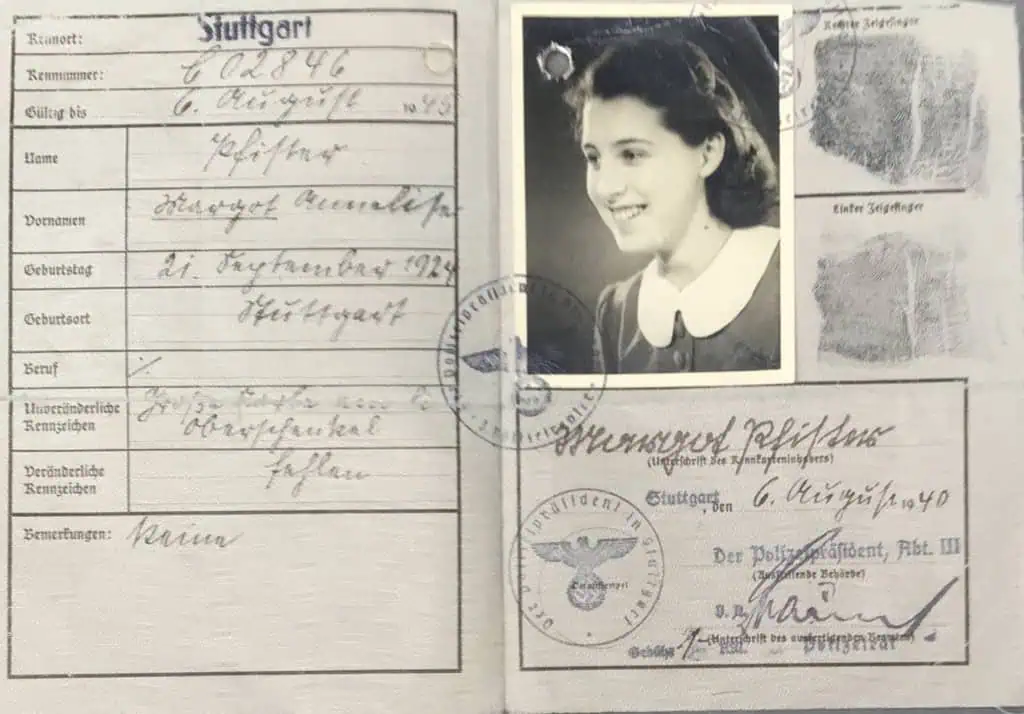 Kennort: Stuttgart
Kennummer: C 02846
Gültig bis 6. August 1945
Name Pfister
Vornamen Margot Annelise
Geburtstag 21. September 1924
Geburtsort Stuttgart
Beruf ./.
Unveränderliche Kennzeichen Große Narbe am
Oberschenkel
Veränderliche Kennzeichen fehlen
Bemerkungen: Keine
Rechter Zeigefinger
Linker Zeigefinger
Margot Pfister
(Unterschrift des Kennkarteninhabers)
Stuttgart, den 6. August 1940
Der Polizeipräsident, Abt. III
(Ausstellende Behörde)
(Unterschrift des ausfertigenden Beamten)
Polizeirat
Der Polizeipräsident in Stuttgart